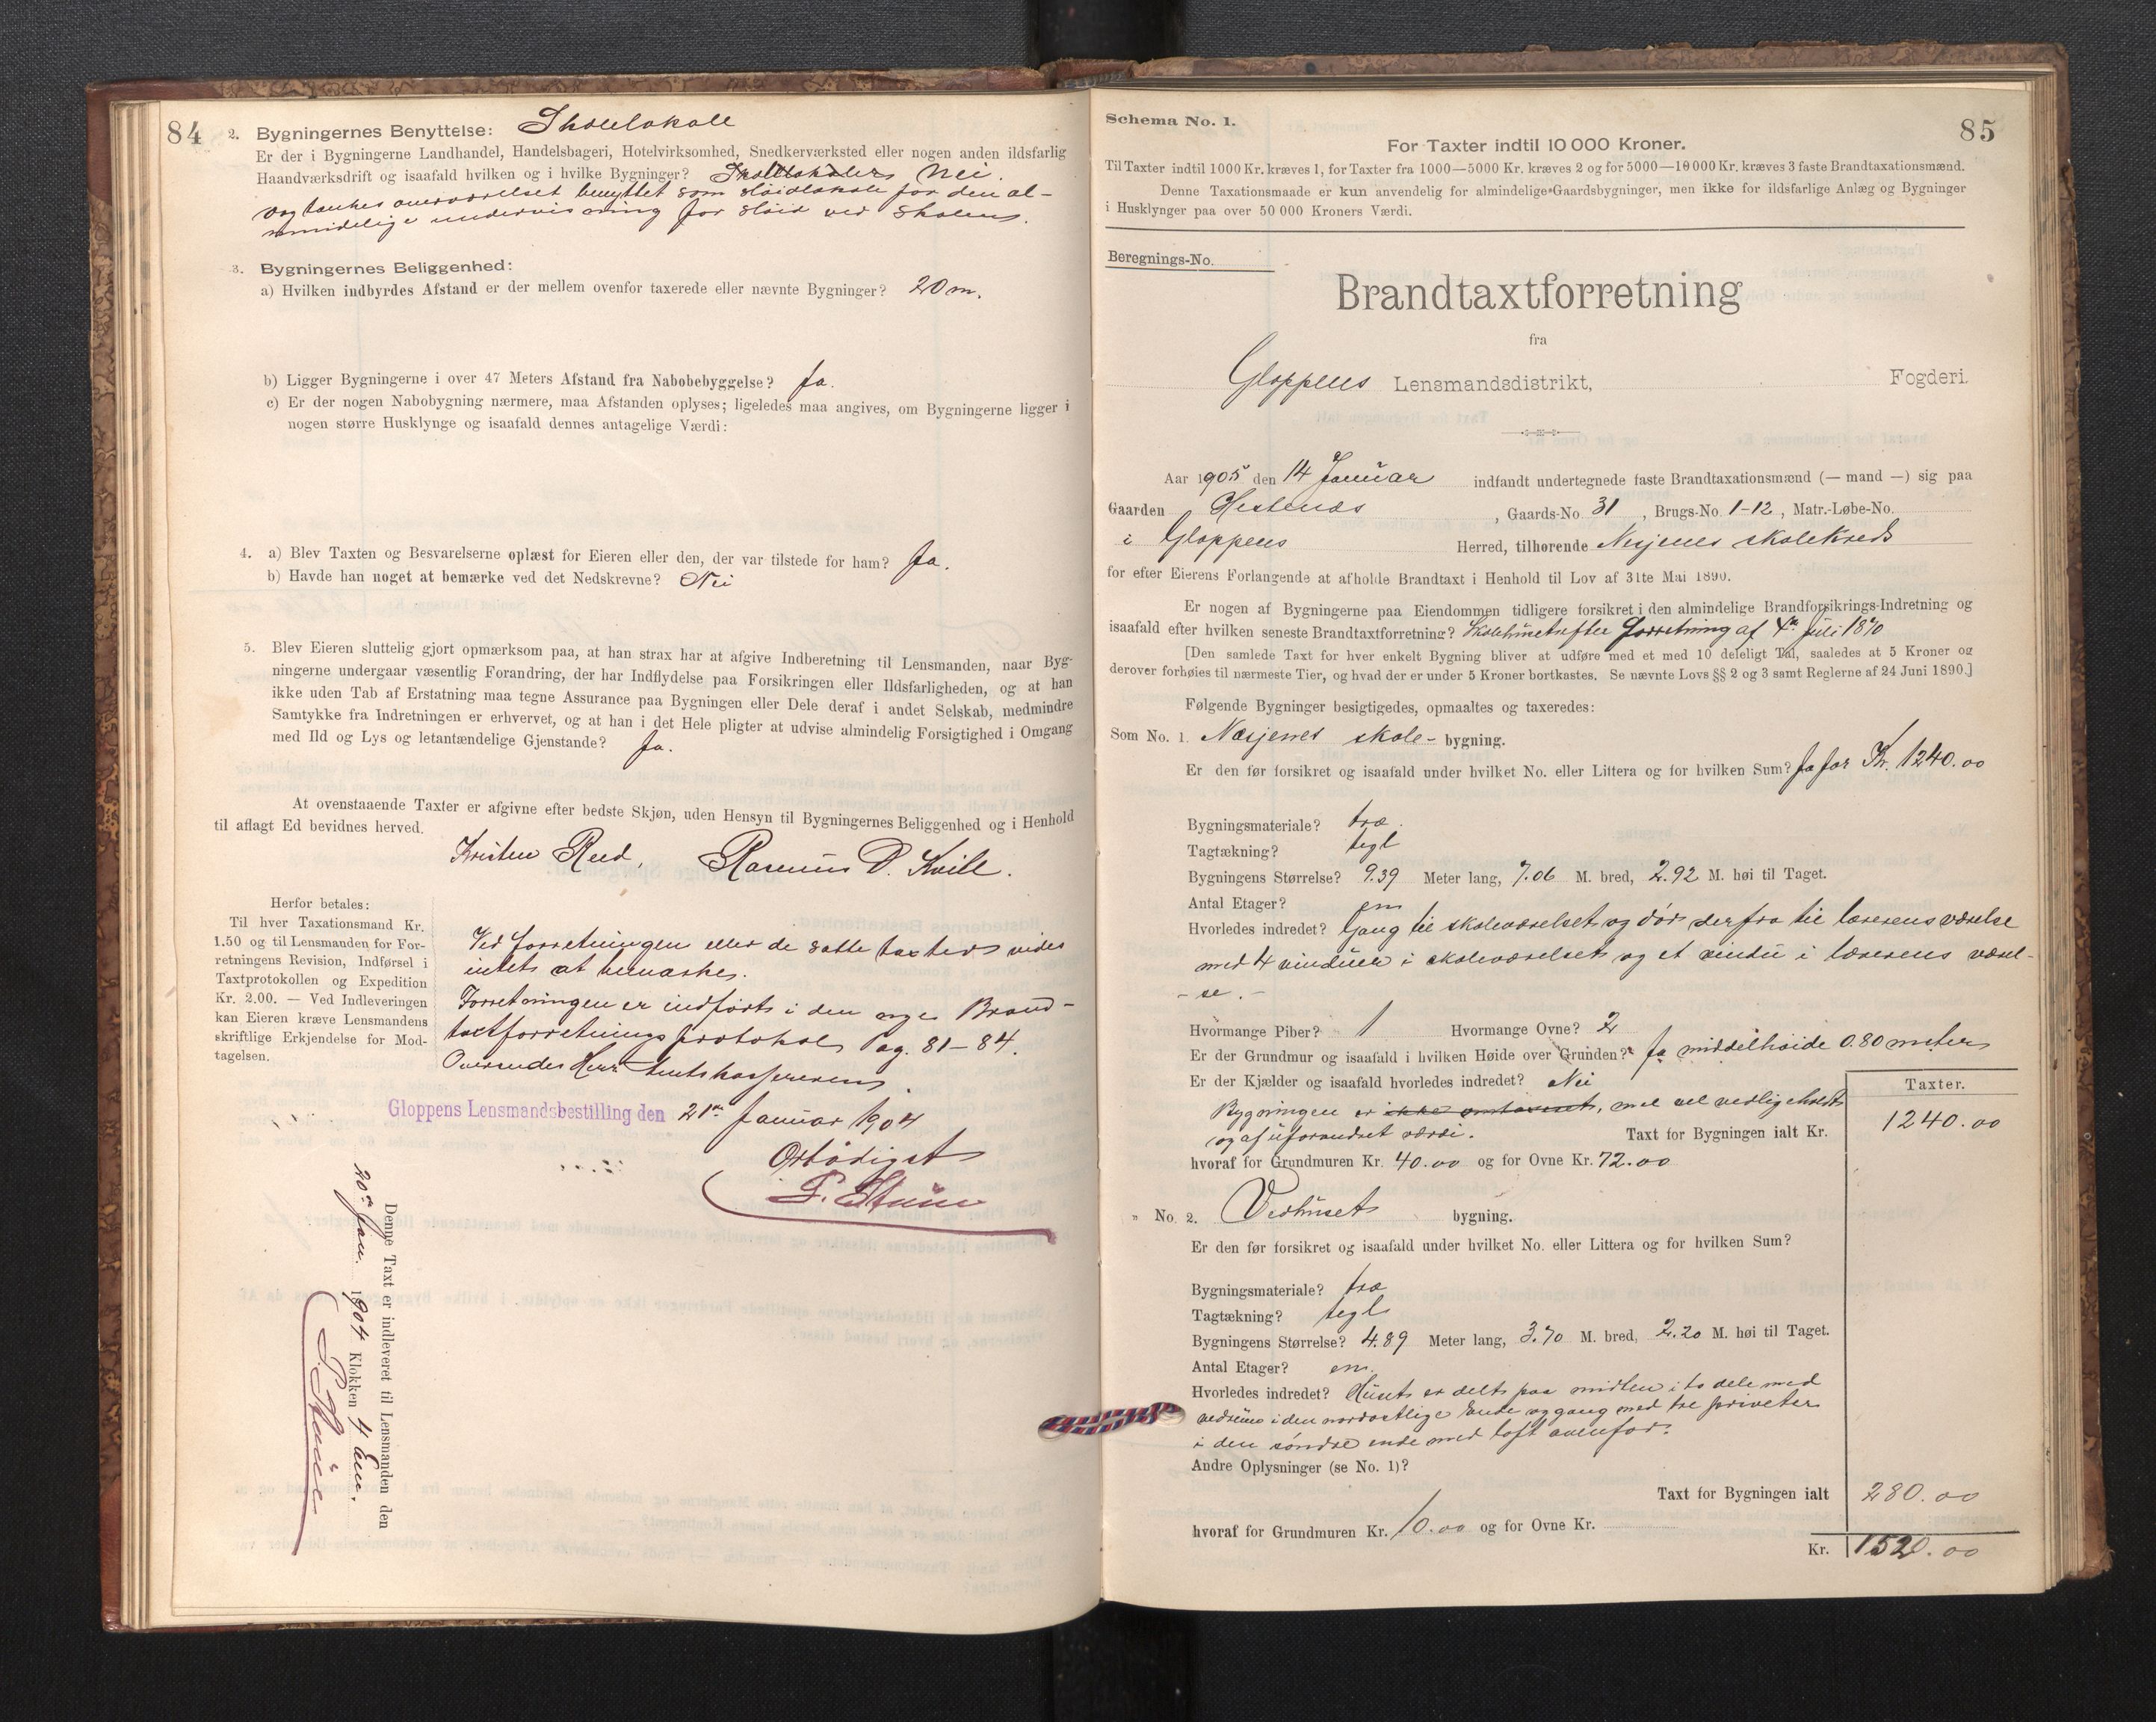 84
2. Bygningernes Benyttelse: Skolelokale
Er der i Bygningerne Landhandel, Handelsbageri, Hotelvirksomhed, Snedkerværksted eller nogen anden ildsfarlig
Haandværksdrift og isaafald hvilken og i hvilke Bygninger? Nei.
og benyttet som sløidlokale for den al-
mindelige undervisning for sløid ved skolen.
3. Bygningernes Beliggenhed:
a) Hvilken indbyrdes Afstand er der mellem ovenfor taxerede eller nævnte Bygninger? 20 m.
b) Ligger Bygningerne i over 47 Meters Afstand fra Nabobebyggelse? Ja.
c) Er der nogen Nabobygning nærmere, maa Afstanden oplyses; ligeledes maa angives, om Bygningerne ligger i
nogen større Husklynge og isaafald dennes antagelige Værdi:
4. a) Blev Taxten og Besvarelserne oplæst for Eieren eller den, der var tilstede for ham? Ja.
b) Havde han noget at bemærke ved det Nedskrevne? Nei
5. Blev Eieren sluttelig gjort opmærksom paa, at han strax har at afgive Indberetning til Lensmanden, naar Byg-
ningerne undergaar væsentlig Forandring, der har Indflydelse paa Forsikringen eller Ildsfarligheden, og at han
ikke uden Tab af Erstatning maa tegne Assurance paa Bygningen eller Dele deraf i andet Selskab, medmindre
Samtykke fra Indretningen er erhvervet, og at han i det Hele pligter at udvise almindelig Forsigtighed i Omgang
med Ild og Lys og letantændelige Gjenstande? Ja.
At ovenstaaende Taxter er afgivne efter bedste Skjøn, uden Hensyn til Bygningernes Beliggenhed og i Henhold
til aflagt Ed bevidnes herved.
Kristen Reed, Rasmus D. Kvill.
Herfor betales:
Til hver Taxationsmand Kr.
1.50 og til Lensmanden for For-
retningens Revision, Indførsel i
Taxtprotokollen og Expedition
Kr. 2.00. — Ved Indleveringen
kan Eieren kræve Lensmandens
skriftlige Erkjendelse for Mod-
tagelsen.
Ved forretningen eller de satte taxter vides
intet at bemærke.
Forretningen er indført i den nye Brand-
taxtforretningsprotokol Pag. 81-84.
Oversendes Herr Amtskassereren.
Gloppens Lensmandsbestilling den 21de Januar 1904
Ærbødigst
Denne Taxt er indleveret til Lensmanden den
20de Jan. 1904 Klokken 4 Em.
Schema No. 1.
85
For Taxter indtil 10 000 Kroner.
Til Taxter indtil 1000 Kr. kræves 1, for Taxter fra 1000—5000 Kr. kræves 2 og for 5000—10000 Kr. kræves 3 faste Brandtaxationsmænd.
Denne Taxationsmaade er kun anvendelig for almindelige Gaardsbygninger, men ikke for ildsfarlige Anlæg og Bygninger
i Husklynger paa over 50 000 Kroners Værdi.
Beregnings-No.
Brandtaxtforretning
fra
Gloppens Lensmandsdistrikt, Fogderi.
Aar 1905 den 14 Januar indfandt undertegnede faste Brandtaxationsmænd (— mand —) sig paa
Gaarden Hestenæs, Gaards-No. 31, Brugs-No. 1-12, Matr.-Løbe-No.
i Gloppens Herred, tilhørende Nesjenes skolekreds
for efter Eierens Forlangende at afholde Brandtaxt i Henhold til Lov af 31te Mai 1890.
Er nogen af Bygningerne paa Eiendommen tidligere forsikret i den almindelige Brandforsikrings-Indretning og
isaafald efter hvilken seneste Brandtaxtforretning? Skolehuset efter forretning af 4de Juli
[Den samlede Taxt for hver enkelt Bygning bliver at udføre med et med 10 deleligt Tal, saaledes at 5 Kroner og
derover forhøies til nærmeste Tier, og hvad der er under 5 Kroner bortkastes. Se nævnte Lovs §§ 2 og 3 samt Reglerne af 24 Juni 1890.]
Følgende Bygninger besigtigedes, opmaaltes og taxeredes:
Som No. 1. Næsjenes skole- bygning.
Er den før forsikret og isaafald under hvilket No. eller Littera og for hvilken Sum? Ja for Kr. 1240.00
Bygningsmateriale? træ.
Tagtækning? tegl
Bygningens Størrelse? 9.39 Meter lang, 7.06 M. bred, 2.92 M. høi til Taget.
Antal Etager? en
Hvorledes indredet? Gang til skoleværelset og dør derfra til lærerens værelse
med 4 vinduer i skoleværelset og et vindu i lærerens værel-
- se. -
Hvormange Piber? 1 Hvormange Ovne? 2
Er der Grundmur og isaafald i hvilken Høide over Grunden? Ja middelhøide 0.80 meter
Er der Kjælder og isaafald hvorledes indredet? Nei
Taxter.
Bygningen er ikke omtaxeret, men vel vedligeholdt
og af uforandret værdi. Taxt for Bygningen ialt Kr. 1240.00
hvoraf for Grundmuren Kr. 40.00 og for Ovne Kr. 72.00
" No. 2. Vedhuset bygning.
Er den før forsikret og isaafald under hvilket No. eller Littera og for hvilken Sum?
Bygningsmateriale? træ
Tagtækning? tegl
Bygningens Størrelse? 4.89 Meter lang, 3.70 M. bred, 2.20 M. høi til Taget.
Antal Etager? en.
Hvorledes indredet? Huset er delt paa midten i to dele med
vedrum i den nordostlige ende og gang med tre priveter
i den søndre ende med loft ovenfor.
Andre Oplysninger (se No. 1)?
Taxt for Bygningen ialt 280.00
hvoraf for Grundmuren Kr. 10.00 og for Ovne Kr.
Kr. 1520.00